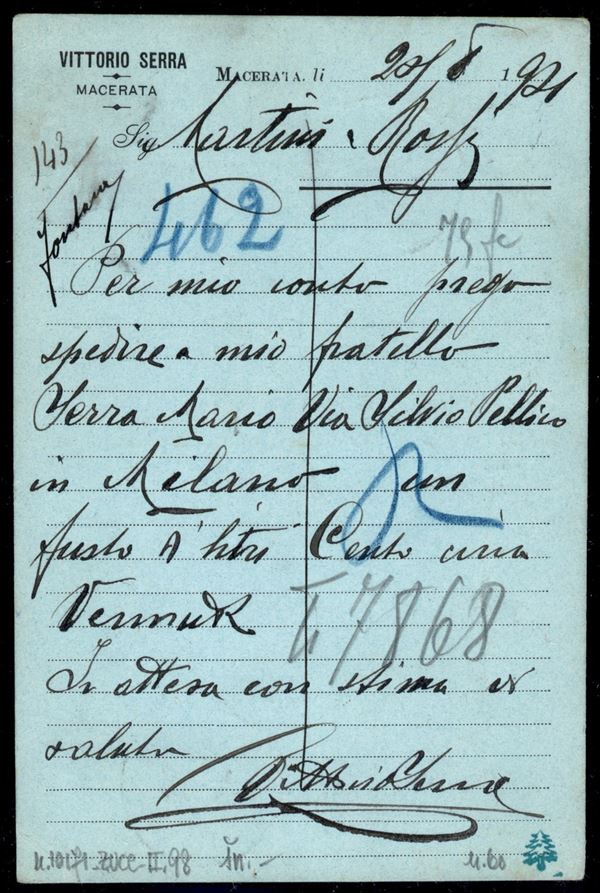 VITTORIO SERRA
MACERATA
MACERATA. li 28/8 1921
Sig Martini e Rossi
143
Fontana
462
75 fc
Per mio conto prego
spedire a mio fratello
Serra Mario Via Silvio Pellico
in Milano un
fusto di litri Cento circa
Vermuth
In attesa con stima vi
saluto
Vittorio Serra
7868